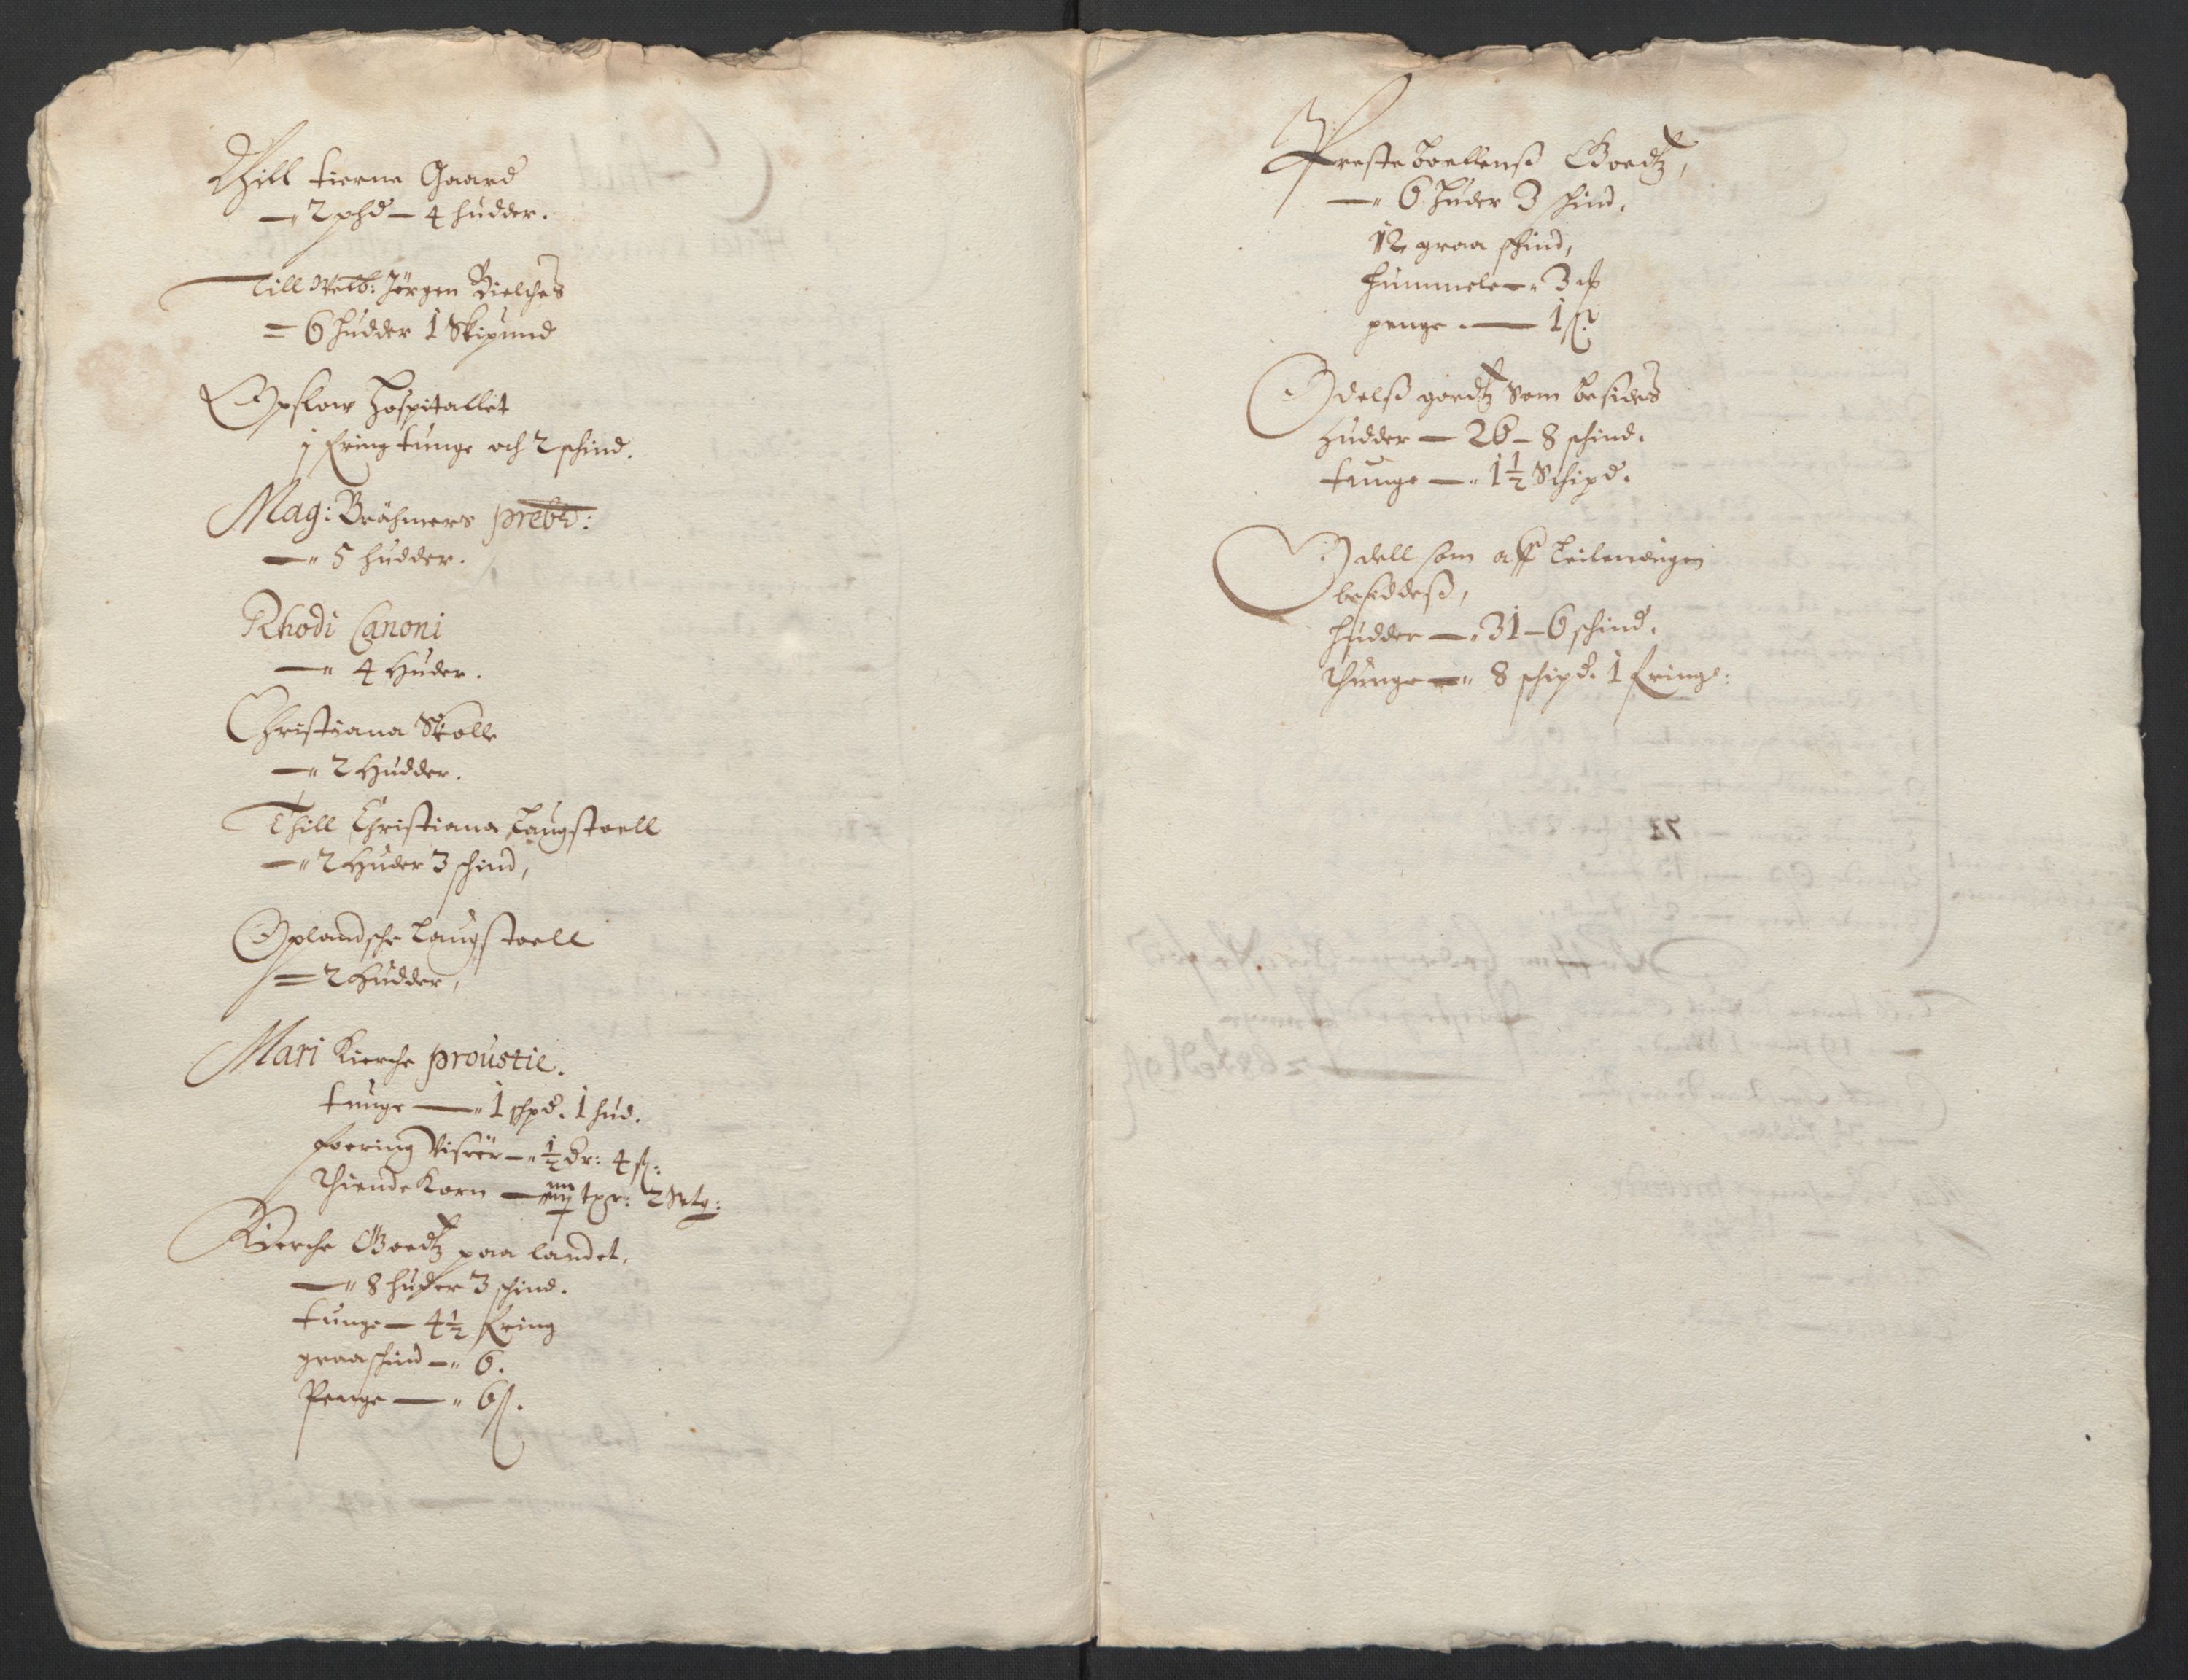 Thill tierne Gaard
— 2 phd — 4 hudder.
Till Welb: Jørgen Bielches
= 6 hudder 1 Skipund
Opslow Hospitallet
1 fring tunge och 2 schind.
Mag: Brähmers prebd:
— 5 hudder.
Rhodi Canoni
— 4 Huder.
Christiana Skolle
— 2 Hudder.
Thill Christiana Laugstoell
— 2 Huder 3 schind,
Oplandsche Laugstoell
= 2 Hudder,
Mari Kierche proustie.
tunge — 1 schpd. 1 hud.
foering Visøer — ½ dr: 4 ß:
Thiende Korn — tgr: 2 Setg:
Kierche Goedtz paa landet.
— 8 huder 3 schind.
tunge — 4½ fring
graaschind — 6.
Penge — 6 ß.
Presteboellenß Goedtz,
— 6 Huder 3 schind.
12 graa schind,
hummele — 3
penge. — 1 ß
Odelß goedtz som besides
Hudder — 26 — 8 schind.
tunge — 1½ Schipd.
Odell som aff Leilendingen
besiddeß,
hudder — 31 — 6 schind.
Thunge — 8 schipd. 1 fringe: